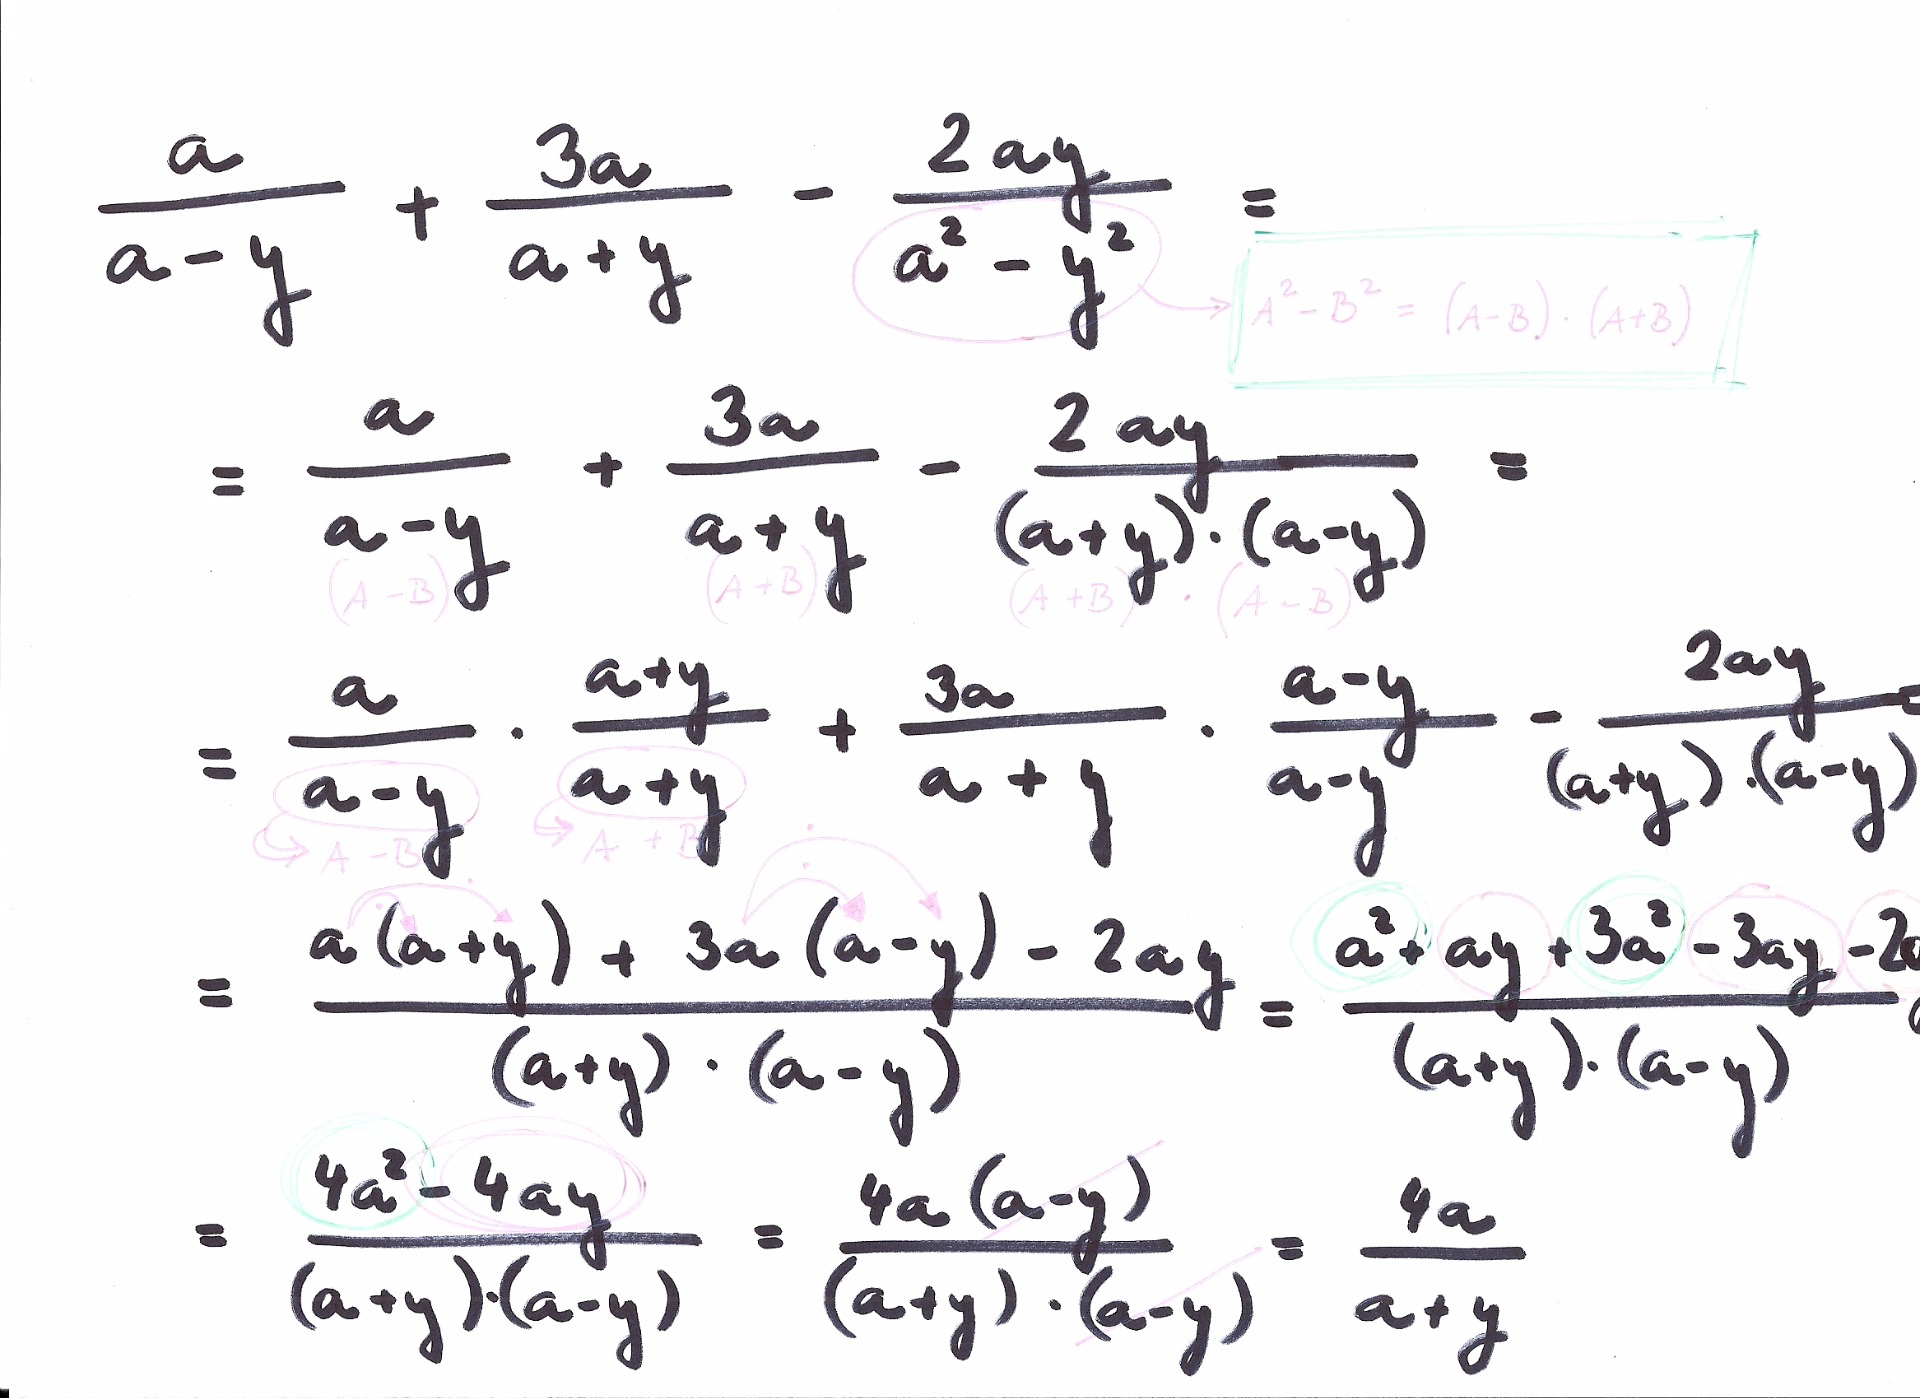 a/(a-y) + 3a/(a+y) - 2ay/(a²-y²) =
A²-B² = (A-B)·(A+B)
= a/(a-y) + 3a/(a+y) - 2ay/((a+y)·(a-y)) =
(A-B) (A+B) (A+B)·(A-B)
= a/(a-y) · (a+y)/(a+y) + 3a/(a+y) · (a-y)/(a-y) - 2ay/((a+y)·(a-y)) =
A-B A+B
= (a(a+y) + 3a(a-y) - 2ay)/((a+y)·(a-y)) = (a²+ay+3a²-3ay-2ay)/((a+y)·(a-y))
= (4a²-4ay)/((a+y)·(a-y)) = (4a(a-y))/((a+y)·(a-y)) = 4a/(a+y)